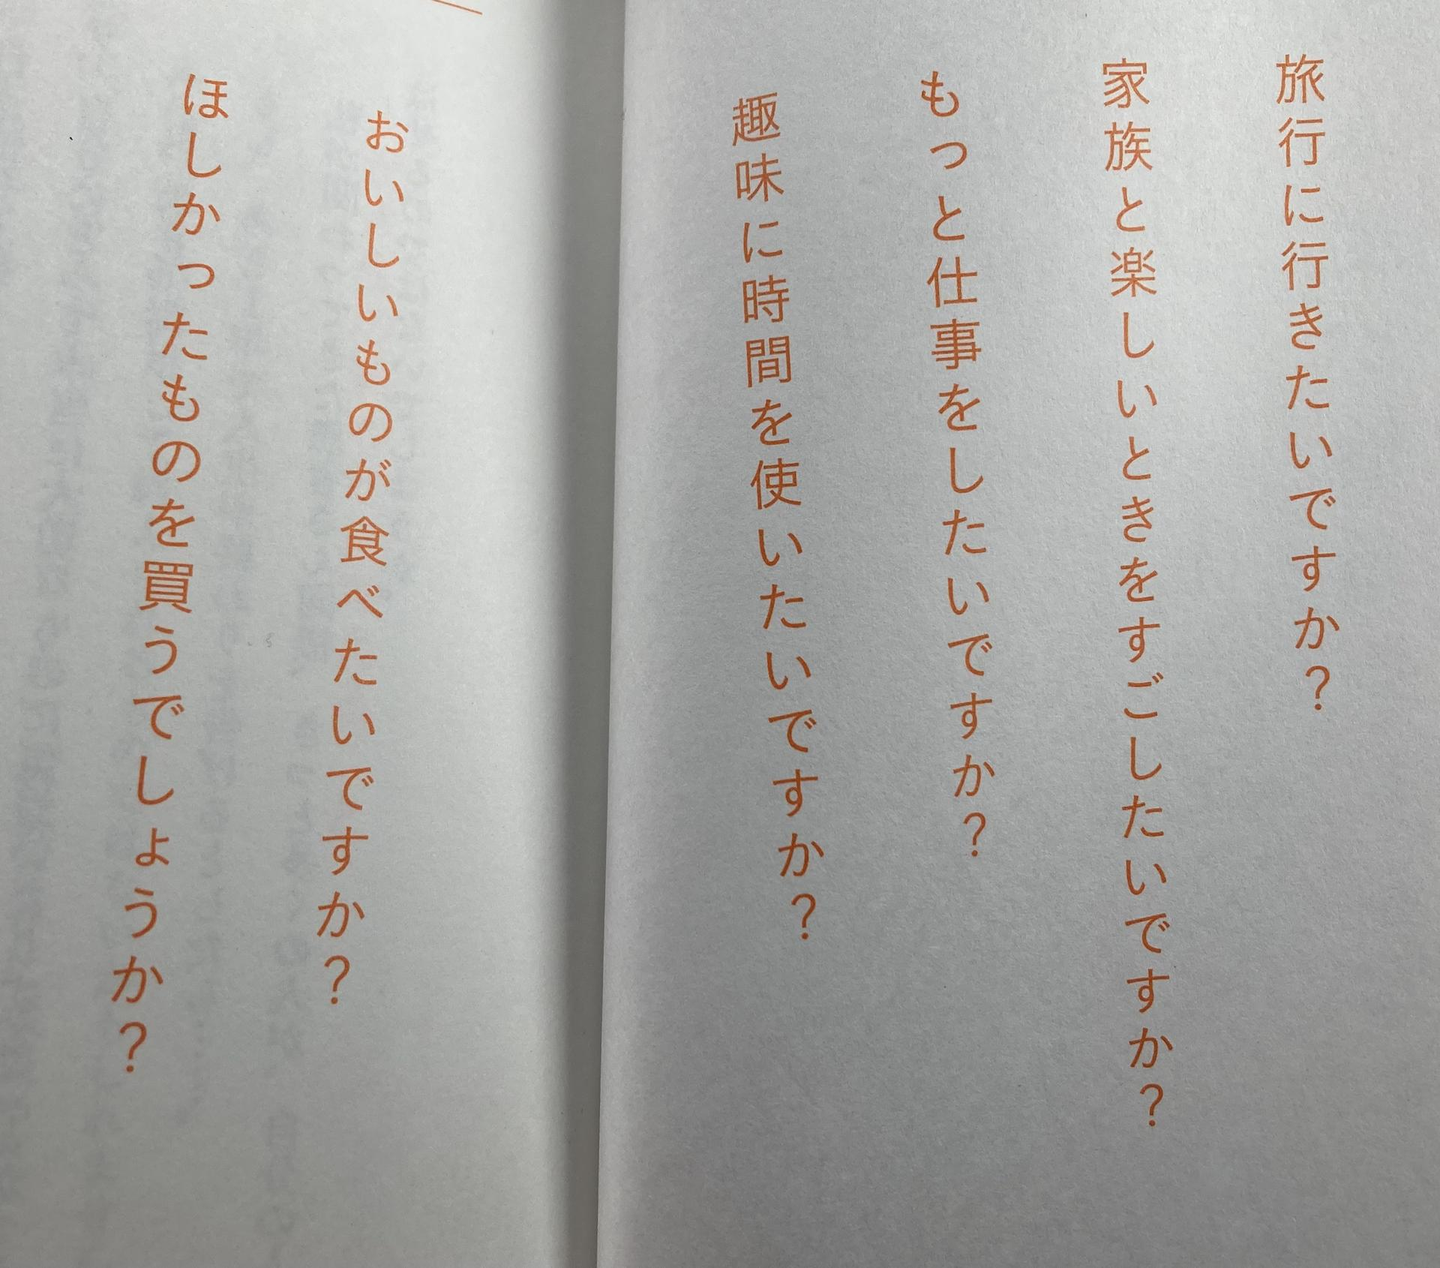 旅行に行きたいですか？
家族と楽しいときをすごしたいですか？
もっと仕事をしたいですか？
趣味に時間を使いたいですか？
おいしいものが食べたいですか？
ほしかったものを買うでしょうか？